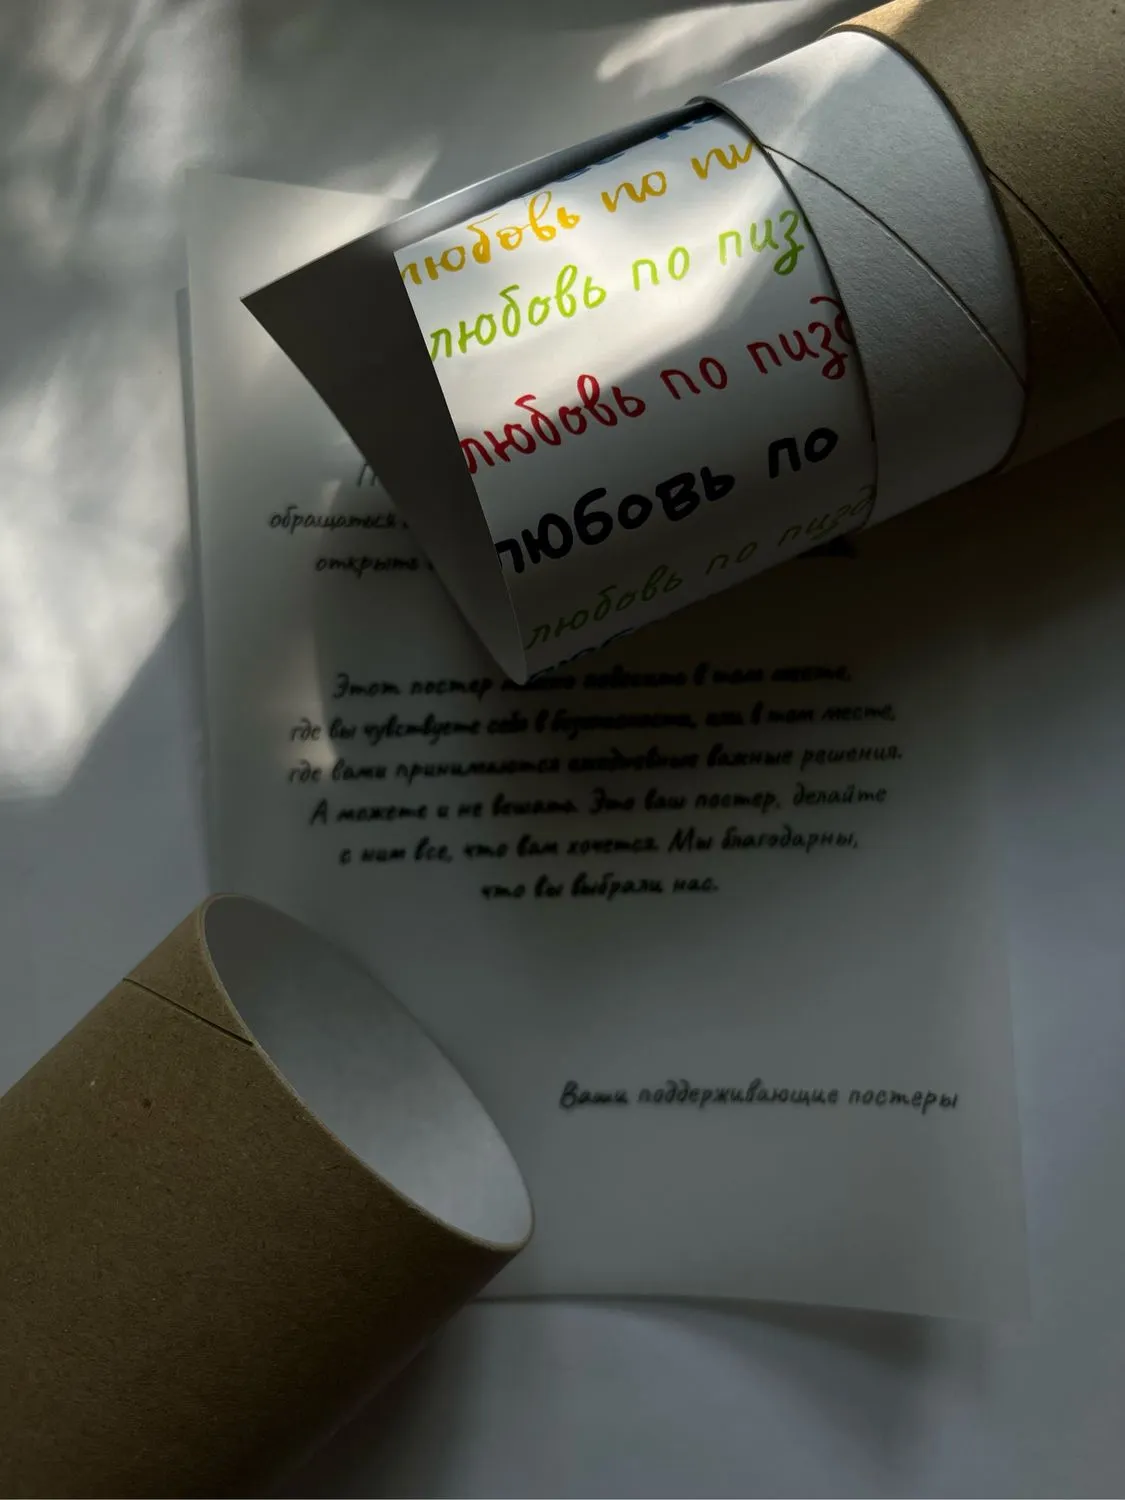 любовь по пи
любовь по пизд
любовь по пизд
любовь по
любовь по пизд
обращаться
открыто
Этот постер можно повесить в том месте,
где вы чувствуете себя в безопасности, или в том месте,
где вами принимаются ежедневные важные решения.
А можете и не вешать. Это ваш постер, делайте
с ним все, что вам хочется. Мы благодарны,
что вы выбрали нас.
Ваши поддерживающие постеры